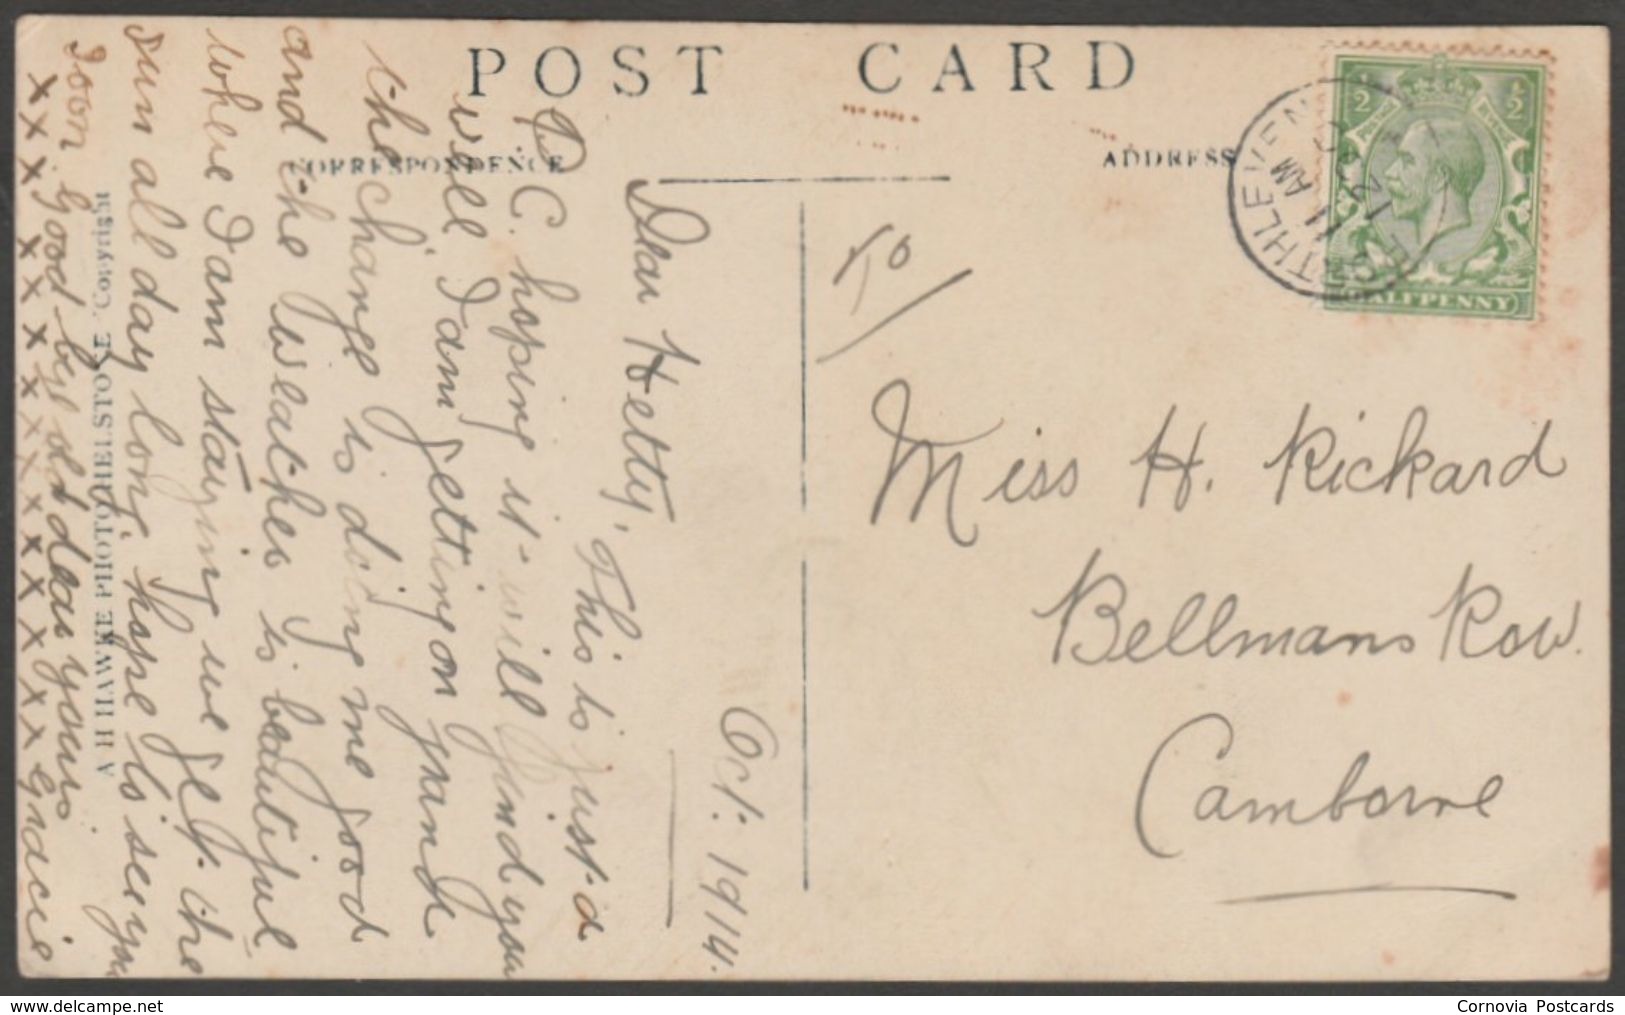 POST CARD
CORRESPONDENCE
ADDRESS
Oct: 1914.
Dear Hetty,
This is just a
P.C. hoping it will find you
well. I am getting on grand
the change is doing me good
and the weather is beautiful
where I am staying we get the
sun all day long, hope to see you
soon. Good bye
dear yours.
x x x x x x x x x x x x x x x Gracie
A H HAWKE PHOTO HELSTON Copyright
To
Miss H. Rickard
Bellmans Row.
Camborne
PORTHLEVEN
11 AM
12 OC
14
HALFPENNY
½ ½
Cornovia Postcards